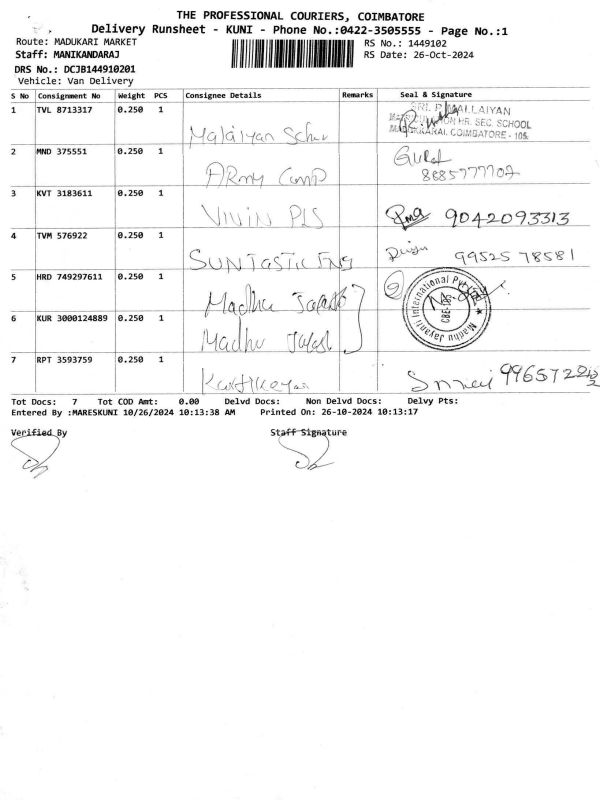 THE PROFESSIONAL COURIERS, COIMBATORE
Delivery Runsheet - KUNI - Phone No.:0422-3505555 - Page No.:1
Route: MADUKARI MARKET RS No.: 1449102
Staff: MANIKANDARAJ RS Date: 26-Oct-2024
DRS No.: DCJB144910201
Vehicle: Van Delivery
S No Consignment No Weight PCS Consignee Details Remarks Seal & Signature
1 TVL 8713317 0.250 1 Malaiyan SRI. P. MALLAIYAN
HR. SEC. SCHOOL
COIMBATORE - 105
2 MND 375551 0.250 1 Army Camp
8885777702
3 KVT 3183611 0.250 1 VIVIN PLS 9042093313
4 TVM 576922 0.250 1 SUNTASTIC ENG 99525 78581
5 HRD 749297611 0.250 1 Madhu
Madhu Jayanti International Pvt Ltd
CBE-105
6 KUR 3000124889 0.250 1 Madhu
7 RPT 3593759 0.250 1 Karthikeyan
Tot Docs: 7 Tot COD Amt: 0.00 Delvd Docs: Non Delvd Docs: Delvy Pts:
Entered By :MARESKUNI 10/26/2024 10:13:38 AM Printed On: 26-10-2024 10:13:17
Verified By Staff Signature